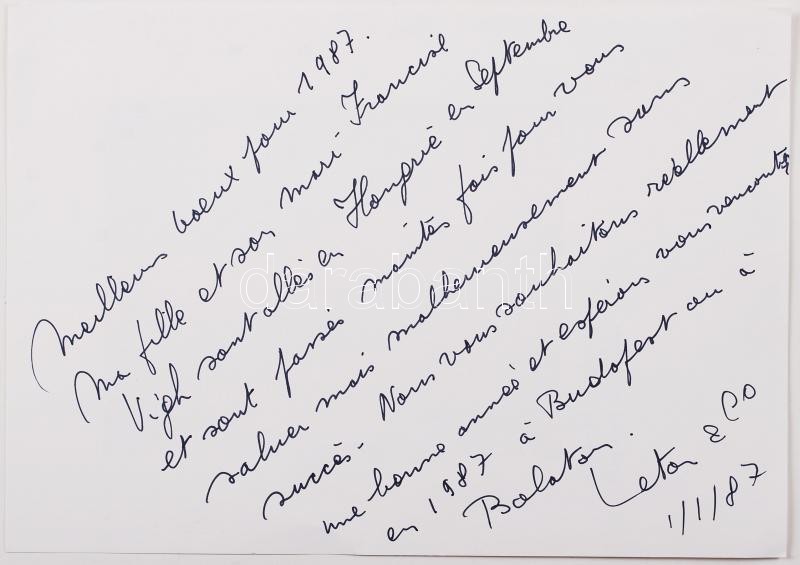 Meilleurs voeux pour 1987.
Ma fille et son mari Francisé
Vigh sont allés en Hongrie en Septembre
et sont passés maintes fois pour vous
saluer mais malheureusement sans
succès. Nous vous souhaitons réellement
une bonne année et espérons vous rencontrer
en 1987 à Budapest ou à
Balaton.
1/1/87
darabanth